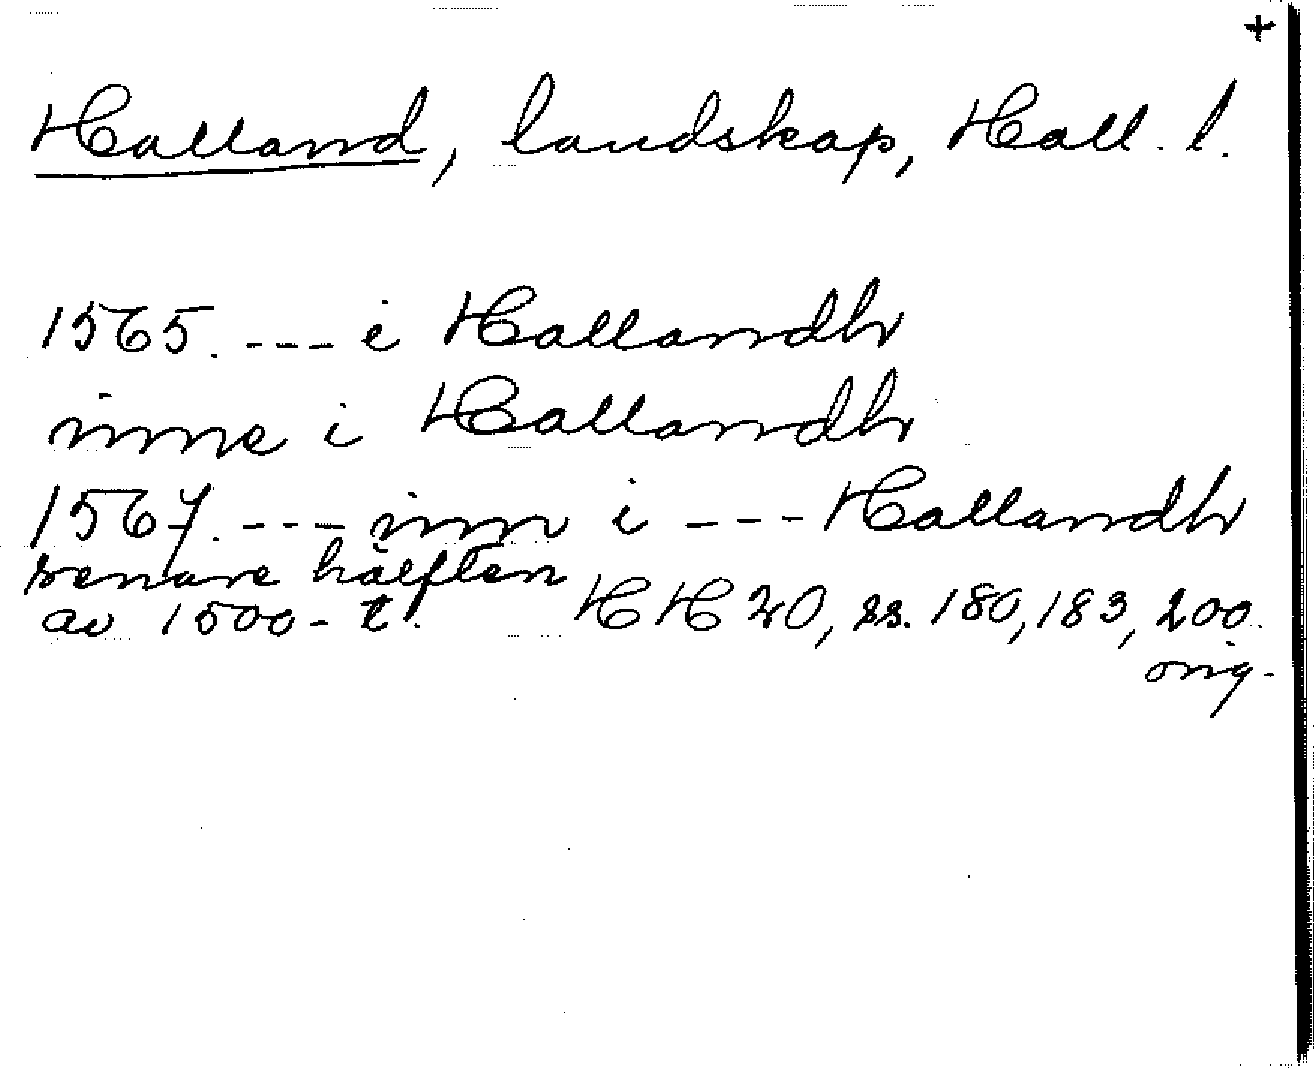 +
Halland, landskap, Hall. l.
1565. --- i Hallandh
inne i Hallandh
1567. --- inn i --- Hallandh
senare hälften
av 1500-t. HH 20, ss. 180, 183, 200.
orig.